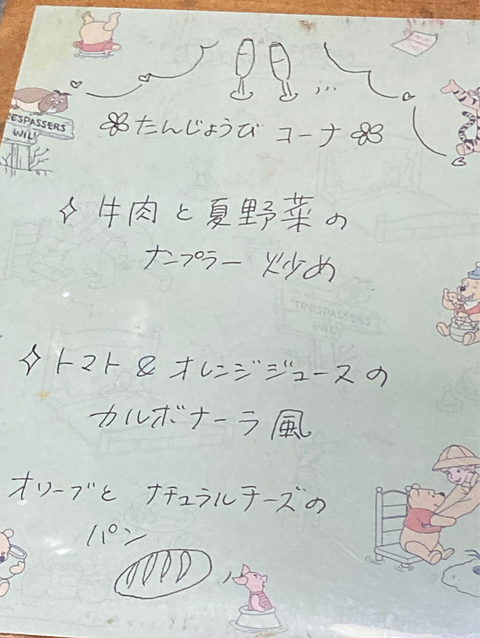 TRESPASSERS
WILL
たんじょうび コーナ
牛肉と夏野菜の
ナンプラー炒め
TRESPASSERS
WILL
トマト&オレンジジュースの
カルボナーラ風
オリーブと ナチュラルチーズの
パン